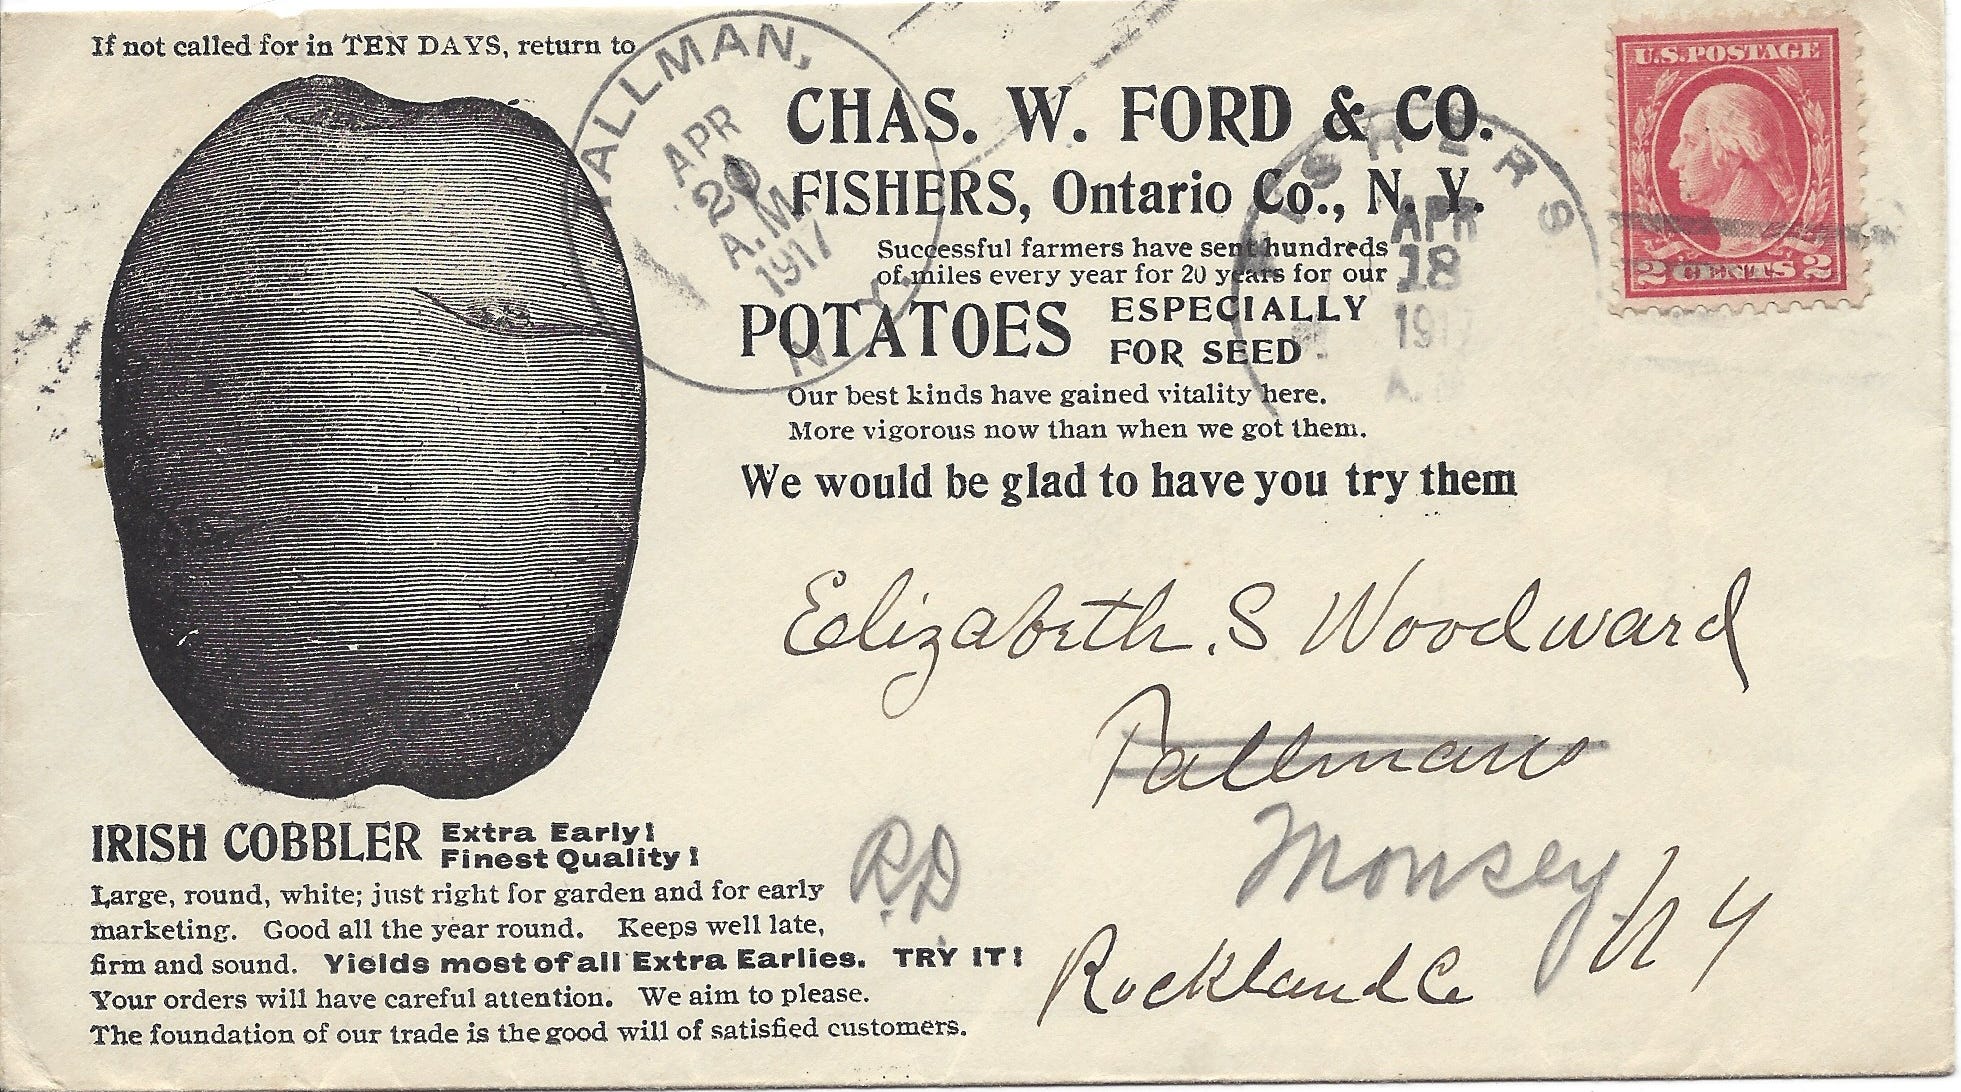 If not called for in TEN DAYS, return to
CHAS. W. FORD & CO.
FISHERS, Ontario Co., N. Y.
Successful farmers have sent hundreds
of miles every year for 20 years for our
POTATOES ESPECIALLY
FOR SEED
Our best kinds have gained vitality here.
More vigorous now than when we got them.
We would be glad to have you try them
TALLMAN,
APR
20
A.M.
1917
N.Y.
FISHERS
APR
18
1917
A.M
U.S. POSTAGE
2 CENTS 2
Elizabeth. S Woodward
Tallmans
Monsey
N Y
Rockland Co
R.D
IRISH COBBLER Extra Early!
Finest Quality!
Large, round, white; just right for garden and for early
marketing. Good all the year round. Keeps well late,
firm and sound. Yields most of all Extra Earlies. TRY IT!
Your orders will have careful attention. We aim to please.
The foundation of our trade is the good will of satisfied customers.